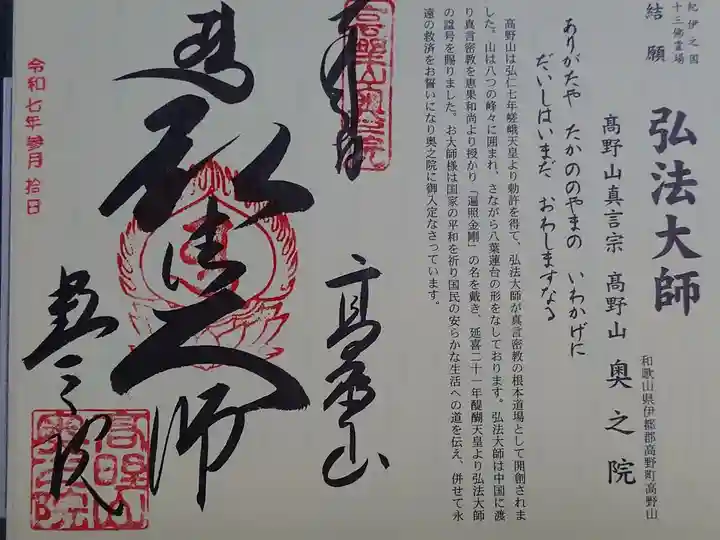 紀伊之国
十三佛霊場
結願
弘法大師
和歌山県伊都郡高野町高野山
高野山真言宗 高野山 奥之院
ありがたや たかののやまの いわかげに
だいしはいまだ おわしますなる
高野山は弘仁七年嵯峨天皇より勅許を得て、弘法大師が真言密教の根本道場として開創されま
した。山は八つの峰々に囲まれ、さながら八葉蓮台の形をなしております。弘法大師は中国に渡
り真言密教を恵果和尚より授かり「遍照金剛」の名を戴き、延喜二十一年醍醐天皇より弘法大師
の諡号を賜りました。お大師様は国家の平和を祈り国民の安らかな生活への道を伝え、併せて永
遠の救済をお誓いになり奥之院に御入定なさっています。
高野山
弘法大師
奥之院
令和七年参月拾日